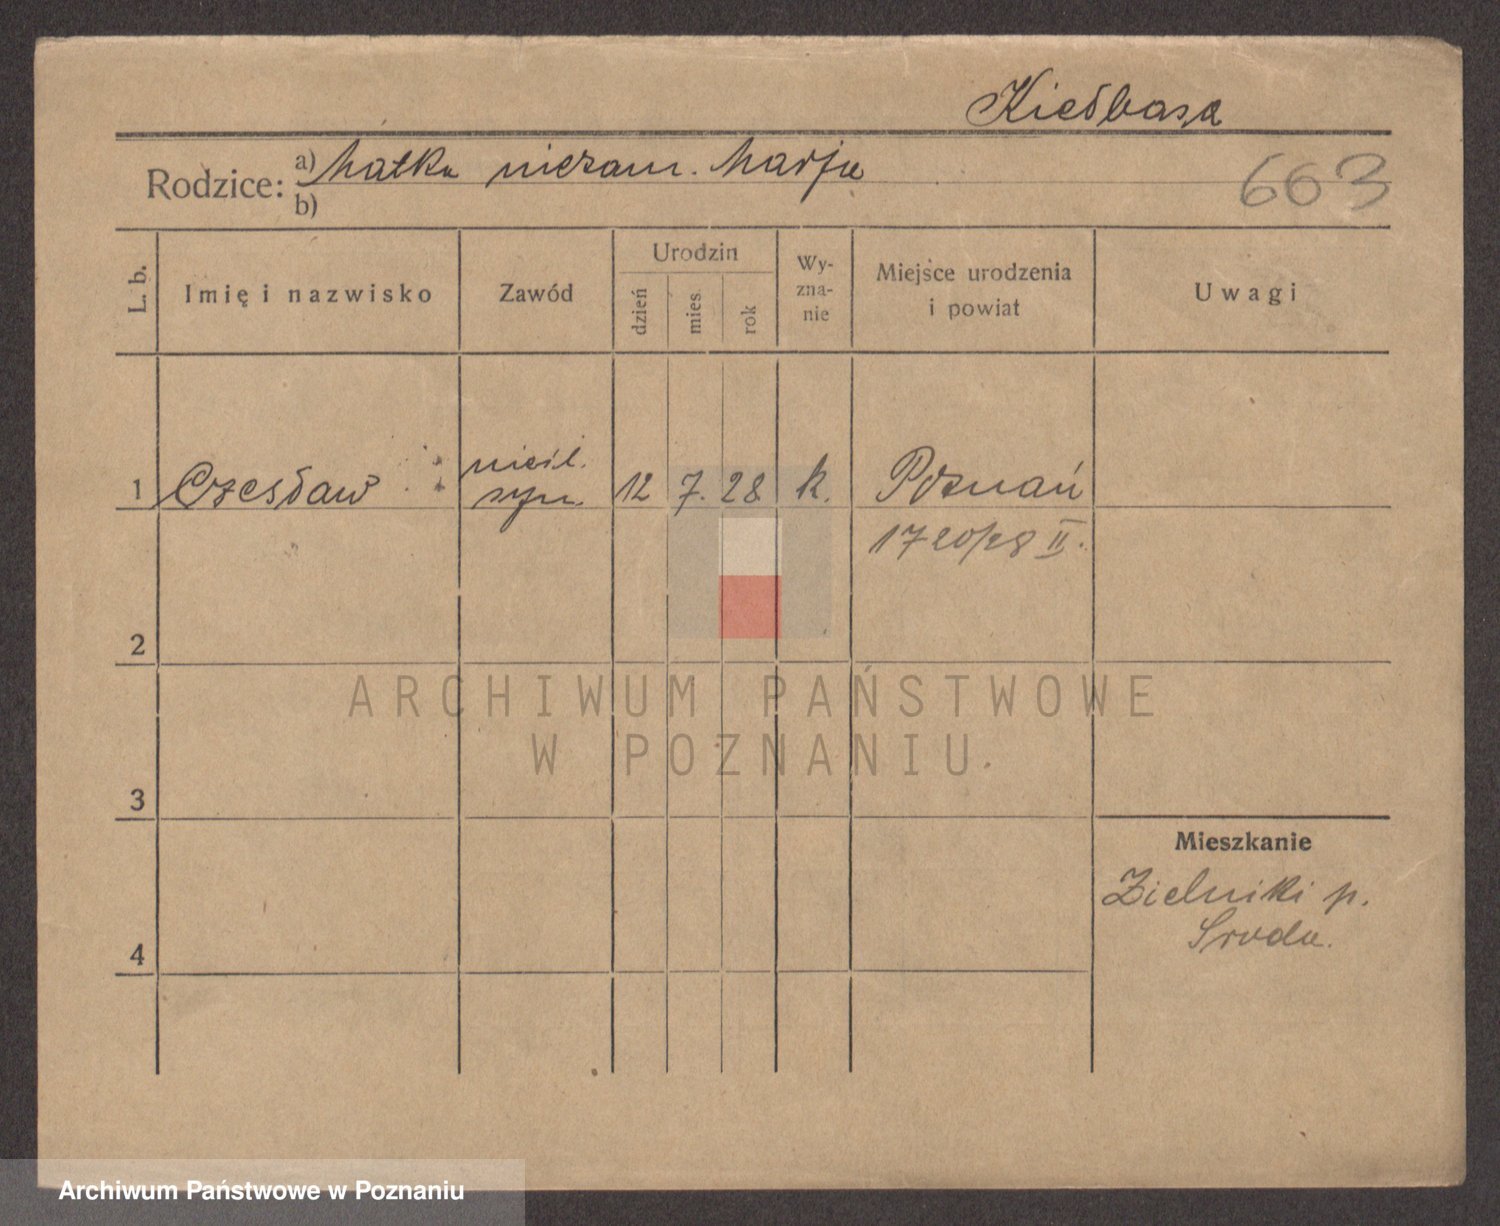 Kiełbasa
Rodzice: a) Matka niezam. Marja
b)
663
L. b.
Imię i nazwisko
Zawód
Urodzin
dzień
mies.
rok
Wy-
zna-
nie
Miejsce urodzenia
i powiat
Uwagi
1 Czesław
nieśl.
syn
12 7. 28 k. Poznań
1720/28 II.
2
3
4
Mieszkanie
Zielniki p.
Sroda.
ARCHIWUM PAŃSTWOWE
W POZNANIU
Archiwum Państwowe w Poznaniu